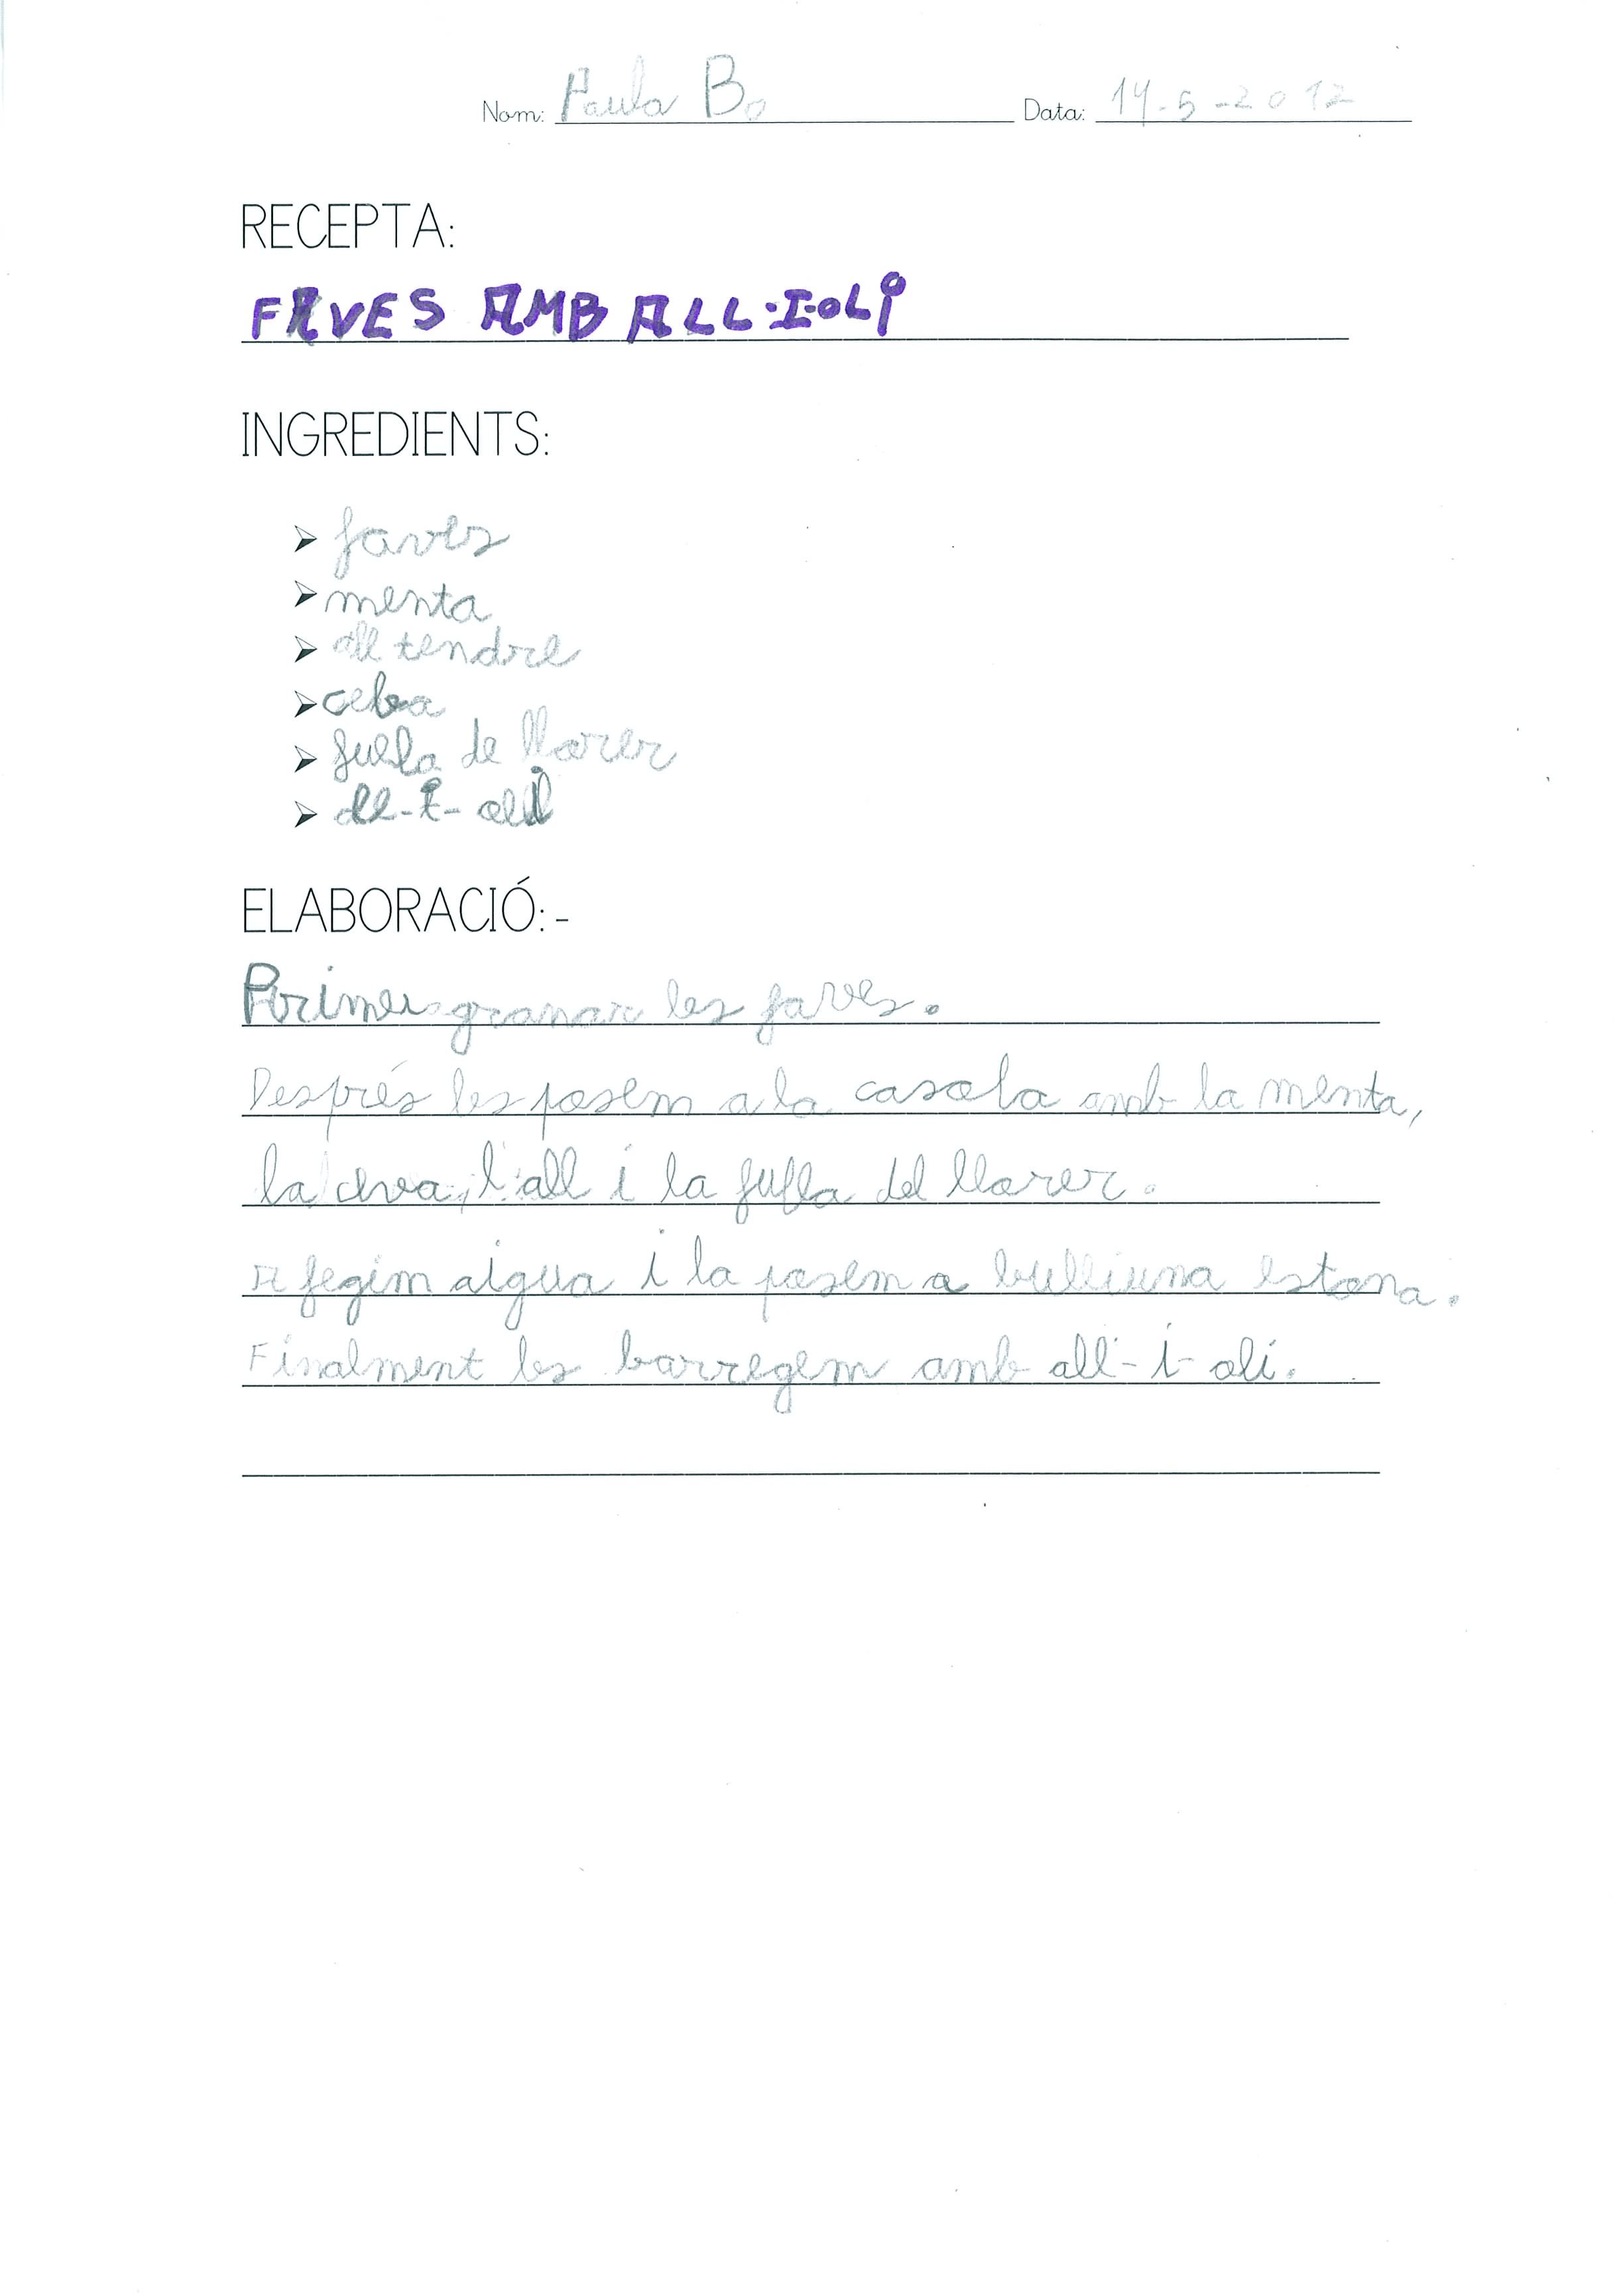 Nom: Paula B. Data: 14-5-2012
RECEPTA:
FAVES AMB ALL-I-OLI
INGREDIENTS:
faves
menta
all tendre
ceba
fuela de llorer
all-i-oli
ELABORACIÓ:-
Primer granar les faves.
Després les posem a la casola amb la menta,
la ceva, l'all i la fulla del llorer.
Afegim aigua i la posem a bulli una estona.
Finalment les barregem amb all-i-oli.